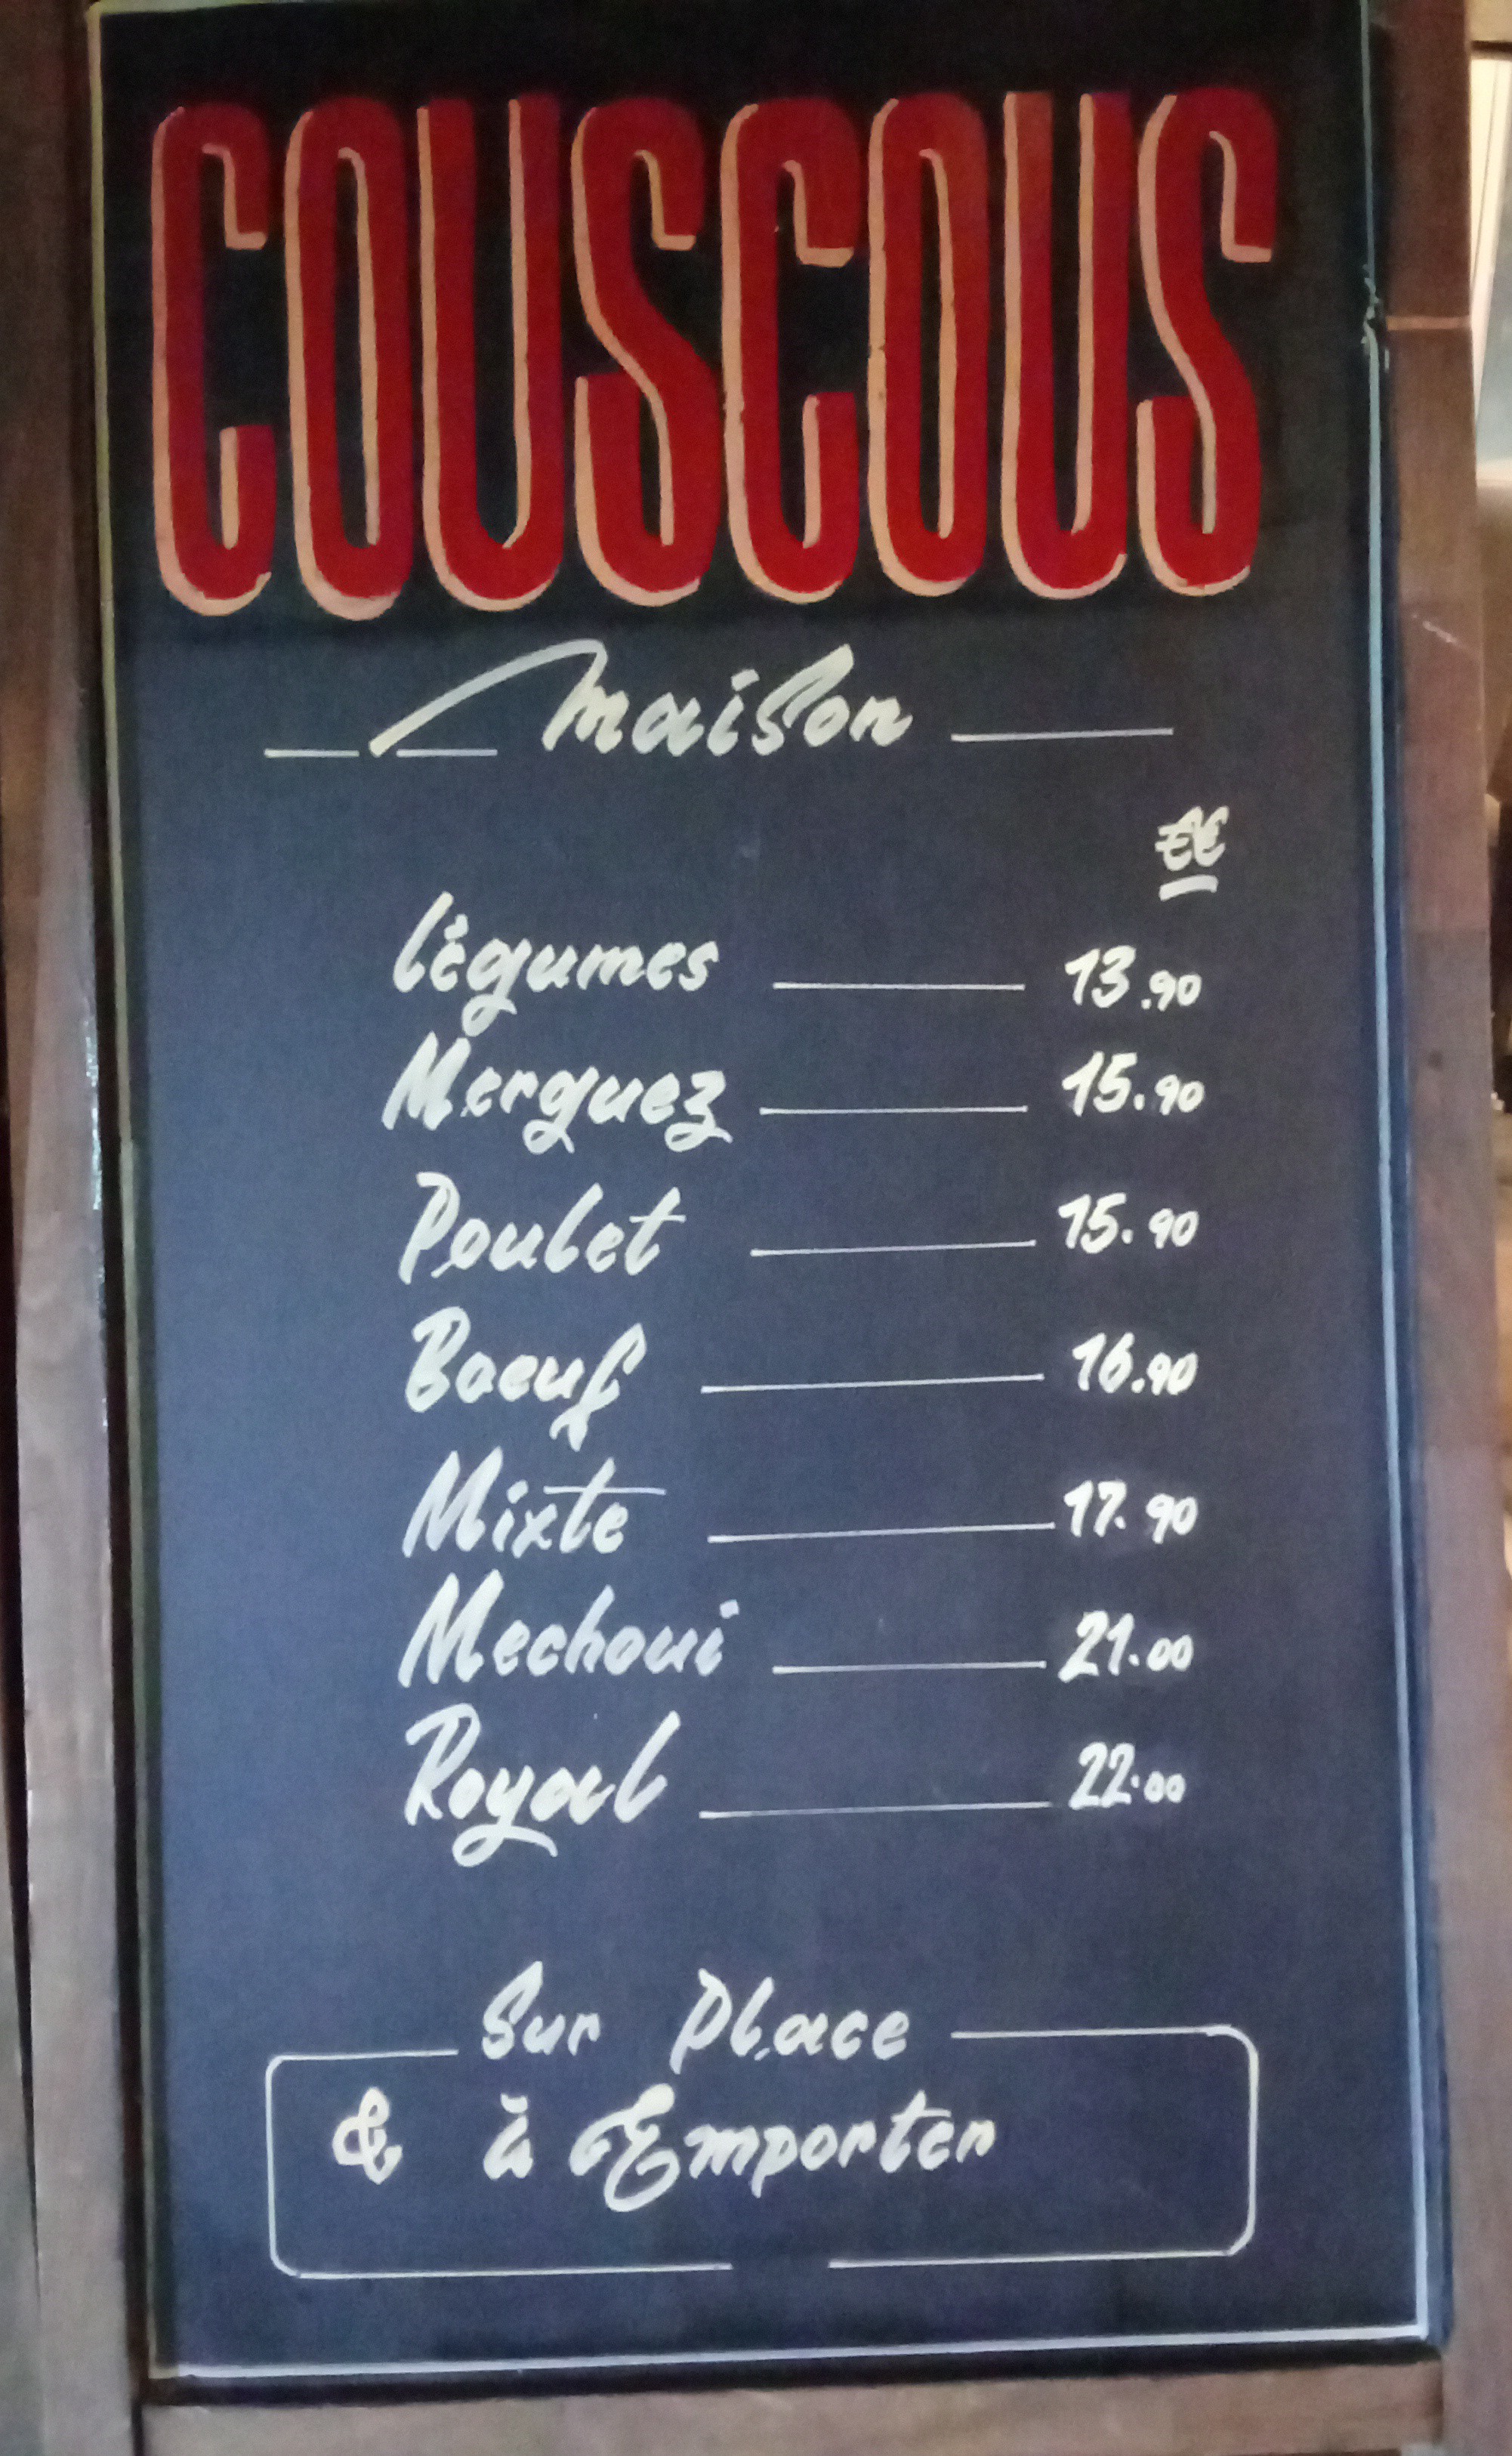 COUSCOUS
maison
€€
Légumes 13.90
Merguez 15.90
Poulet 15.90
Boeuf 16.90
Mixte 17.90
Mechoui 21.00
Royal 22.00
Sur Place
& à Emporter